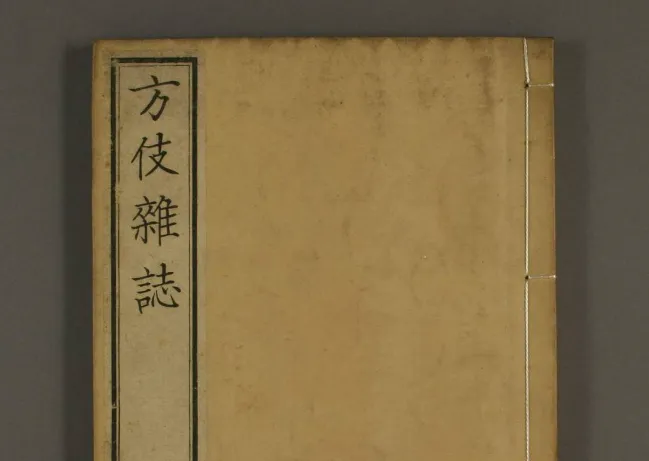 方伎雜誌